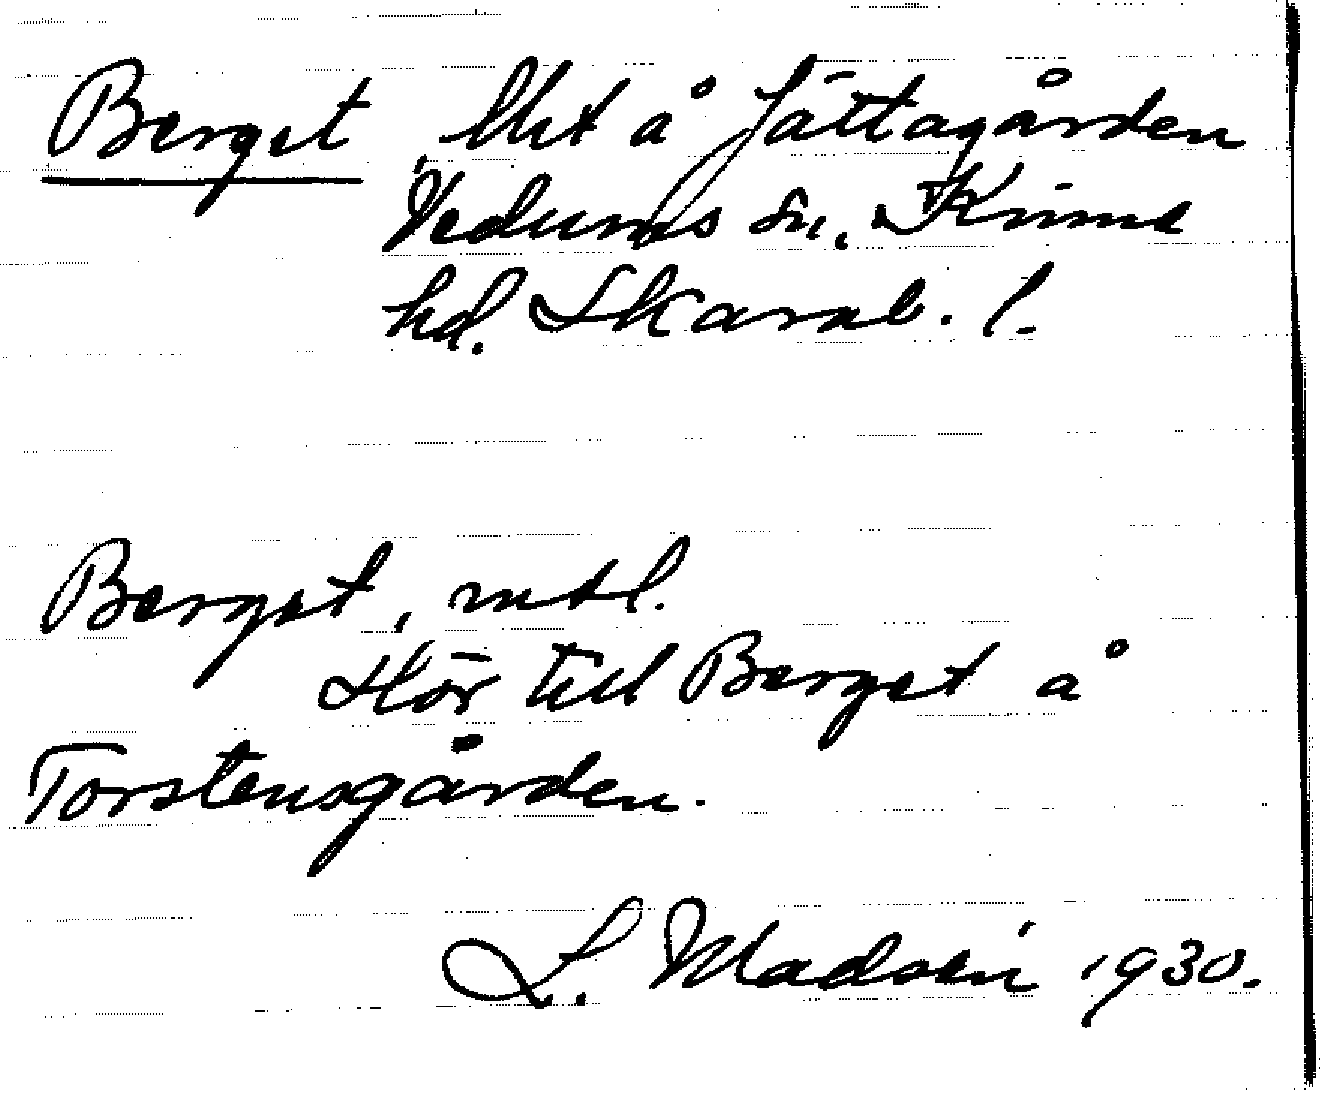 Berget, lht å Jättagården
Vedums sn, Kinne
hd. Skarab. l.
Berget, mtl.
Hör till Berget å
Torstensgården.
L. Madsén 1930.